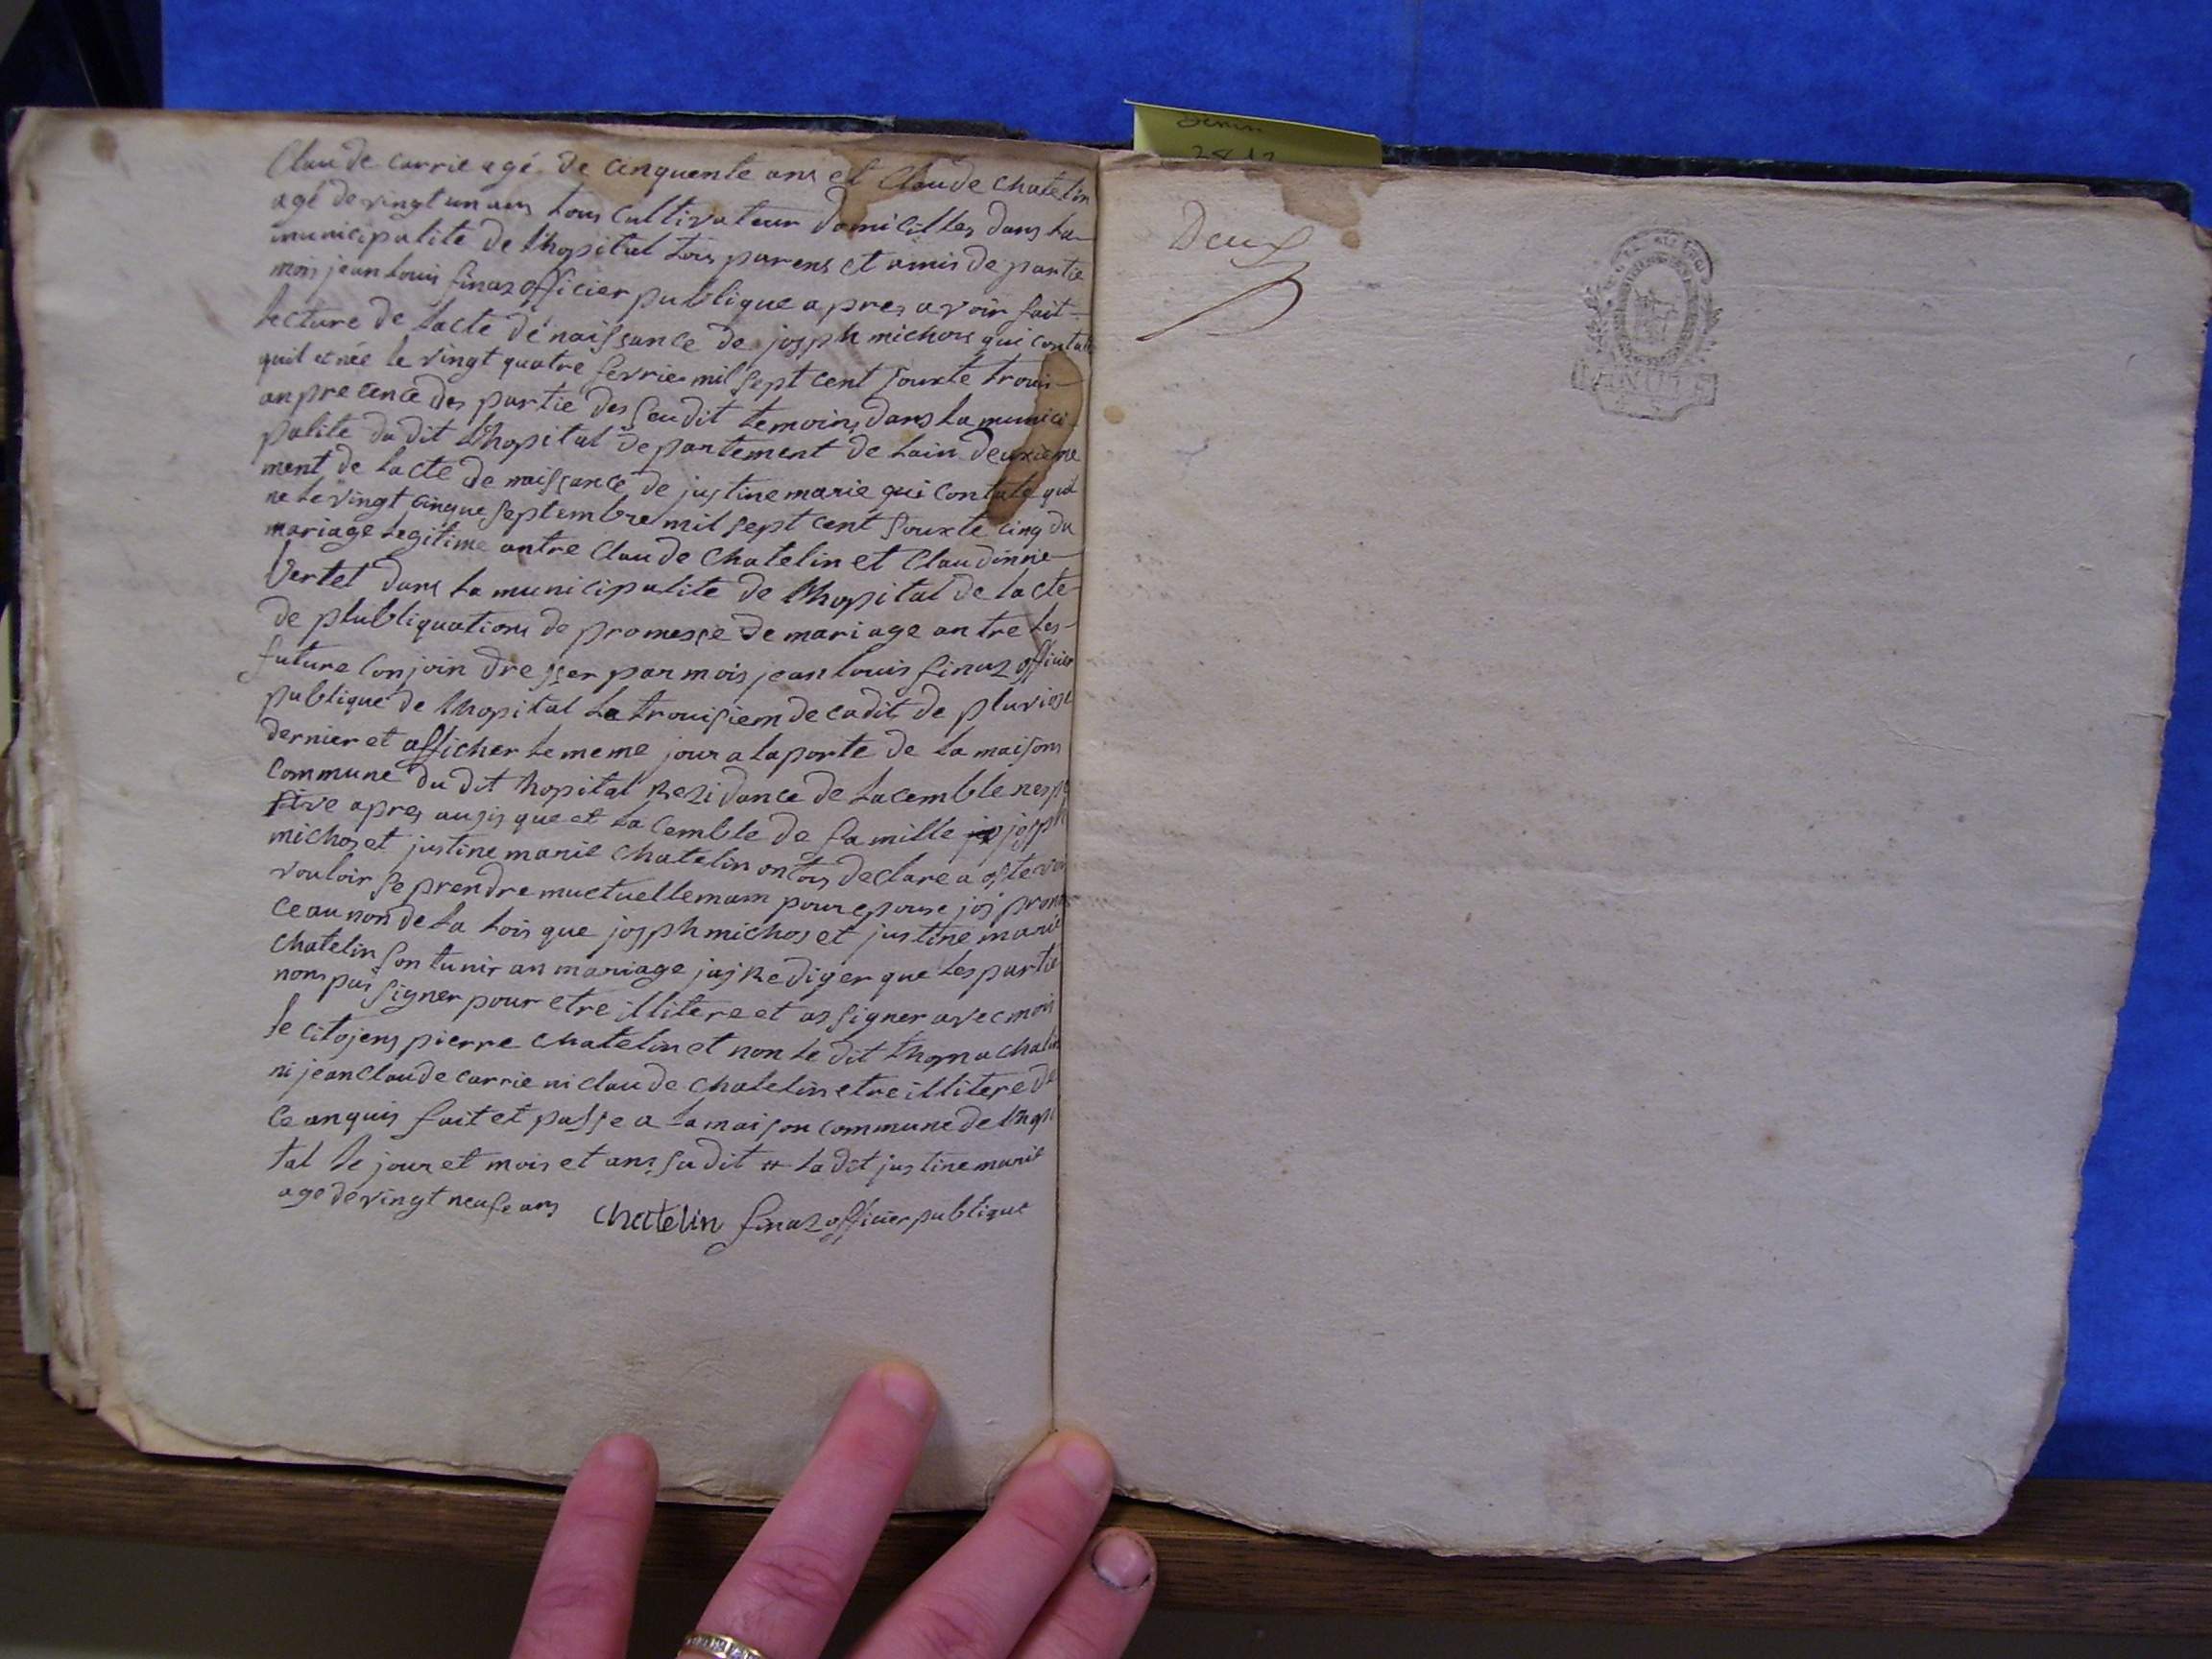 Claude carrie agé de cinquente ans et Claude chatelin
agé de vingt un ans tous cultivateur domicilles dans la
municipalite de lhopital tous parens et amis de partie
mois jean louis finaz officier publique apres avoir fait
lecture de lacte de naissance de joseph michos qui contate
quil et née le vingt quatre fevrie mil sept cent souxte trouis
an precence des partie des seudit temoins dans la munici
palite du dit lhopital departement de lain deuxieme
ment de lacte de naissance de justine marie qui contate quil
ne le vingt cinque septembre mil sept cent souxte cinq du
mariage legitime antre Claude Chatelin et Claudinne
Vertet dans la municipalite de lhopital de lacte
de plubliquations de promesse de mariage antre les
future conjoin dresser par mois jean louis finaz officier
publique de lhopital le trouisiem decadit de pluviose
dernier et afficher le meme jour a la porte de la maisons
commune du dit hopital Rezidance de lacemble respe
tive apres ausis que et lacemble de famille joseph
michos et justine marie chatelin ontous declare a
vouloir se prendre muctuellemam pour epouse jos pronon
ce au non de la lois que josph michos et justine marie
chatelin son tunir an mariage jaj Rediger que les partie
nons pas signer pour etre illitere et as signer avec mois
le citojens pierre chatelin et non le dit thoma chatelin
ni jean Claude carrie ni claude chatelin etre illitere de
ce anquis fait et passe a la maison commune de lhopi
tal le jour et mois et ans sudit # la dit justine marie
age de vingt neufe ans chatelin finaz officier publique
Deux
MINUTE